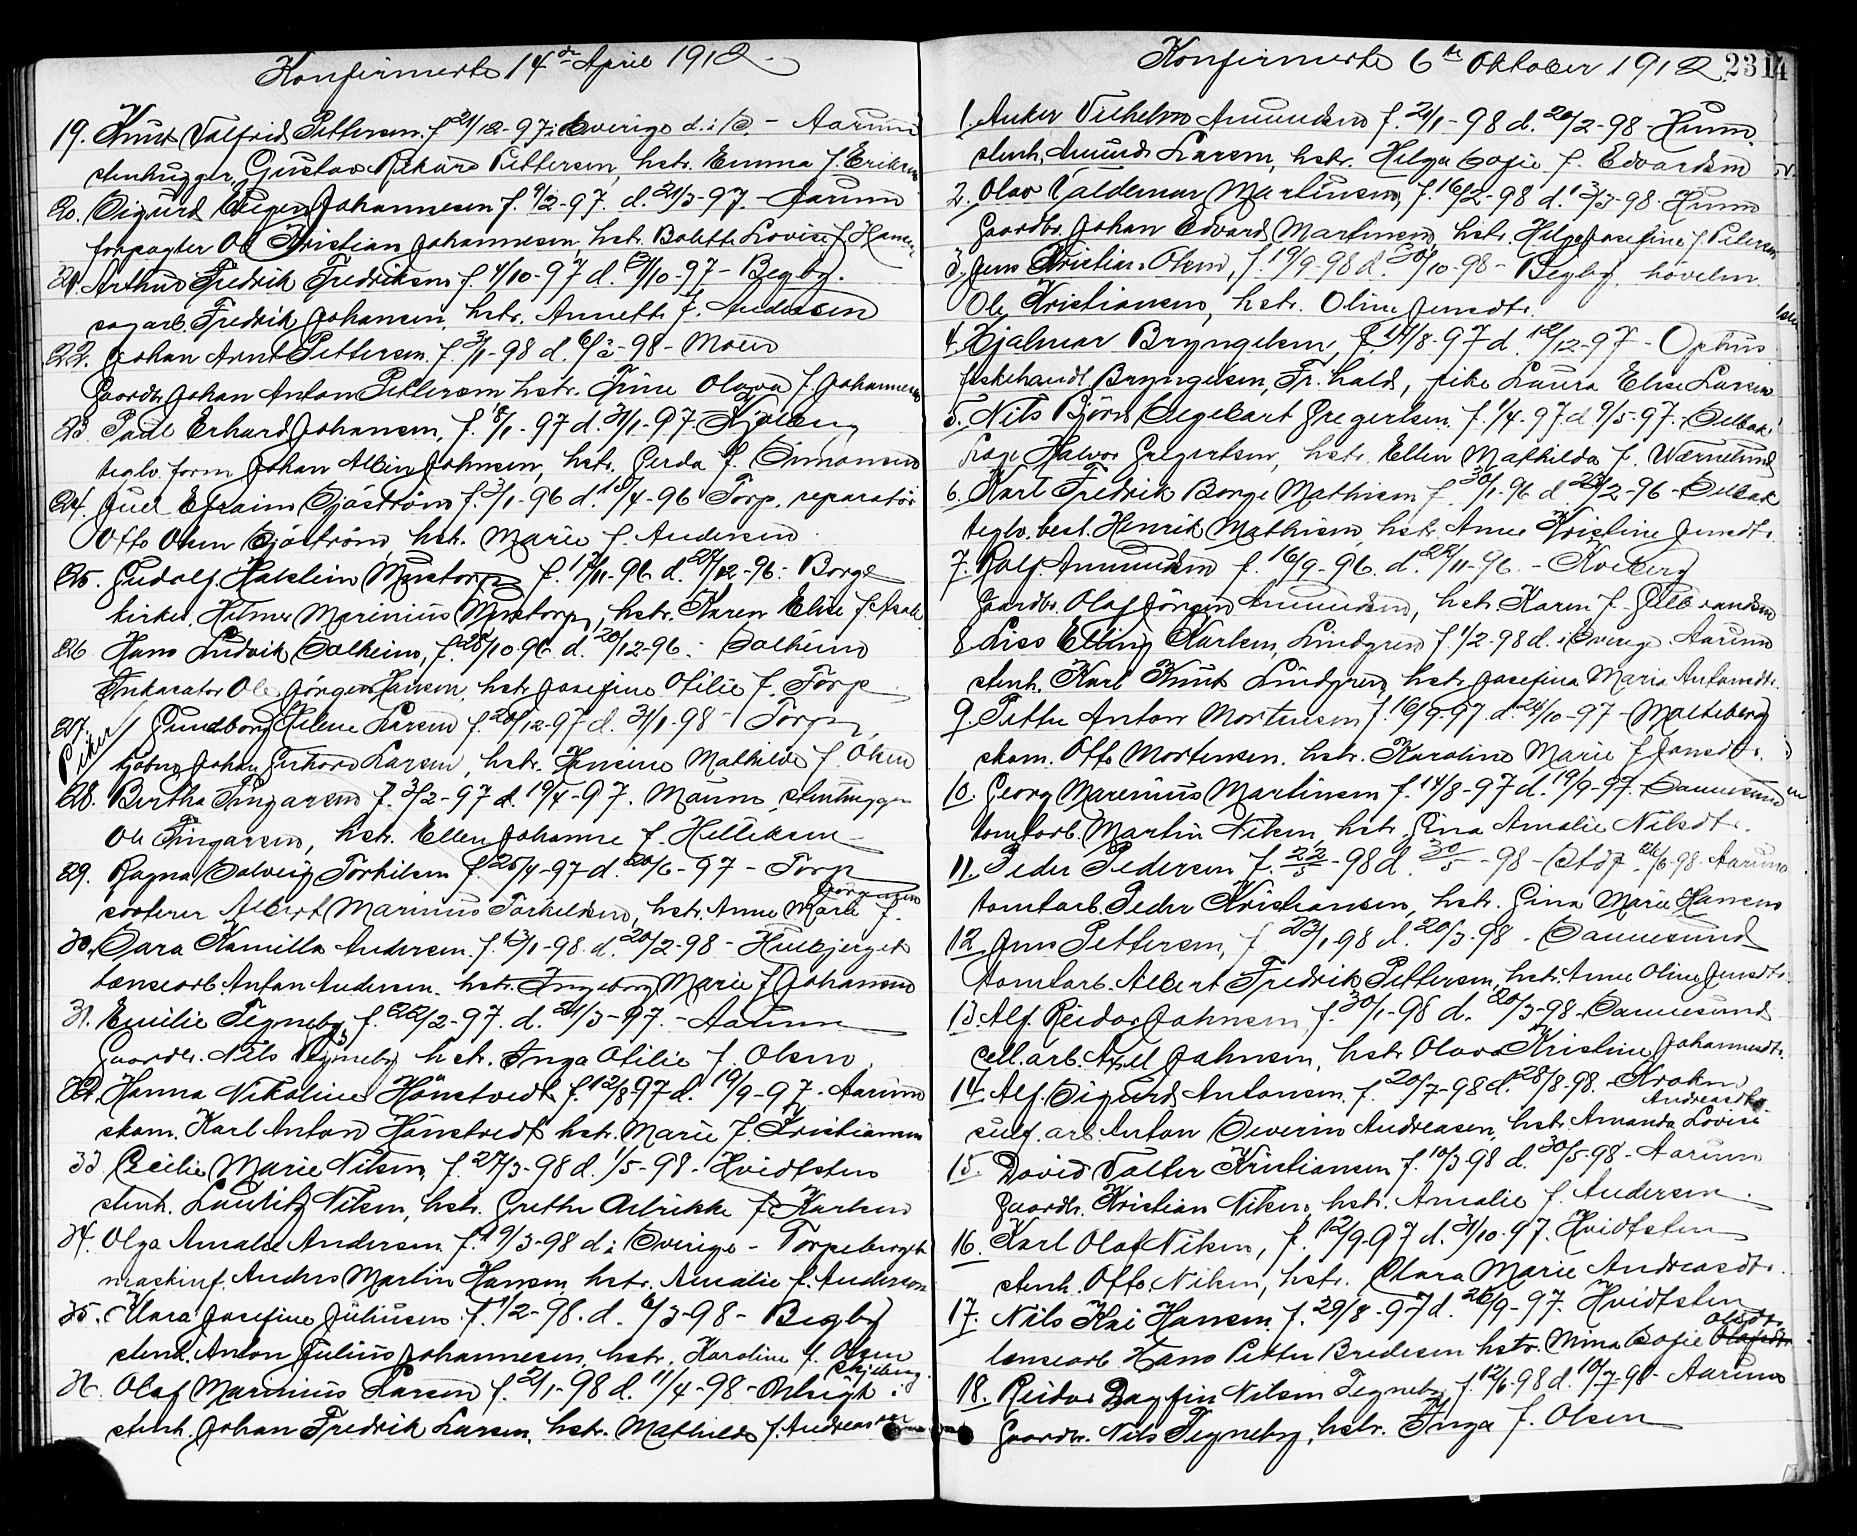 Konfirmerte 14de April 1912.
19. Knut Valfrid Pettersen f. 21/12-97 i Sverige d. i S. - Aarum
stenhugger Gustav Rikard Pettersen, hstr. Emma f. Eriksen
20. Sigurd Eugen Johannesen f. 9/2-97. d. 21/3-97. - Aarum
forpagter Ole Kristian Johannesen hstr. Bolette Lovise f. Hansen
21. Arthur Fredrik Fredriksen f. 4/10-97 d. /10-97 - Begby.
sagarb. Fredrik Johansen, hstr. Annette f. Andersen
22. Johan Arnt Pettersen f. 3/1-98 d. 6/2-98 - Moum
Gaardb. Johan Anton Pettersen hstr. Trine Olava f. Johannesen
23. Paul Erhard Johansen, f. 8/1-97 d. 31/1-97 Kjølberg
teglv. form. Johan Albin Johnsen, hstr. Gerda f. Simonsen
24. Juel Efraim Sjöström f. 3/1-96 d. /4-96 Torp. reparatør
Otto Olsen Sjöström, hstr. Marie f. Andersen
25. Gudolf Halstein Myrstorp f. 17/11-96 d. 27/12-96. Borge
kirket. Hilmer Marinius Myrstorp, hstr. Karen Elise f.
26 Hans Ludvik Solheim, f. 28/10-96 d. 20/12-96. Solheim
Inkasator Ole Jørgen Hansen, hstr. Josefine Otilie f. Torp
27. Gundborg Helene Larsen f. 20/12-97 d. 31/1-98 - Torp
Piker
kjøbm. Johan Gerhard Larsen, hstr. Hensine Mathilde f. Olsen
28. Bertha Tingarsen f. 3/2-97 d. 19/4-97. Moum, stenhugger
Ole Tingarsen, hstr. Ellen Johanne f. Helliksen
29. Ragna Solveig Torkilsen f. 26/4-97 d. 20/6-97 - Torp
Jørgensen
sorterer Albert Marinius Torkildsen, hstr. Anne Marie f.
30. Sara Kamilla Andersen f. 13/1-98 d. 20/2-98 - Hulbjerget
lensearb. Anton Andersen hstr. Ingeborg Marie f. Johansen
31. Emilie Tegneby, f. 22/2-97. d. 21/3-97. - Aarum
Gaardbr. Nils Tegneby hstr. Inga Otilie f. Olsen
32. Hanna Nikoline Hönstvedt f. 12/8 97 d. 19/9-97. Aarum
skom. Karl Anton Hönstvedt hstr. Marie f. Kristiansen
33. Cecilie Marie Nilsen, f. 27/3-98 d. 1/5-98 - Hvidtsten
stenh. Lauritz Nilsen, hstr. Grethe Alrikke f. Karlsen
34. Olga Amalie Andersen f. 19/3-98 d. i Sverige - Torpeberget
maskinf. Anders Martin Hansen, hstr. Amalie f. Andersen
35. Klara Josefine Juliusen f. 1/2-98. d. 6/3-98 - Begby
stenh. Anton Julius Johannesen, hstr. Karoline f. Olsen
Skjeberg.
36. Olaf Marinius Larsen f. 2/1-98 d. 11/4-98 -
stenh. Johan Fredrik Larsen, hstr. Mathilde f. Andreassen
Konfirmerte 6te Oktober 1912
2314
1. Anker Vilhelm Amundsen f. 21/1-98 d. 20/2-98 - Hunn.
stenh. Amund Larsen, hstr. Helga Sofie f. Edvardsen
2. Olav Valdemar Martinsen, f. 16/2-98 d. 13/3-98 - Hunn
Gaardbr. Johan Edvard Martinsen, hstr. Helga Josefine f. Petersen
3. Jens Kristian Olsen, f. 19/9-98 d. 30/10-98 - Begby, høvelm.
Ole Kristiansen, hstr. Oline Jensdtr.
4. Hjalmar Bryngelsen, f. 14/8-97 d. 12/12-97 - Ophus
fiskehandl. Bryngelsen, Fr. hald, pike Laura Elise Larsen
5. Nils Björn Segelcart Gregertsen f. 1/4-97 d. 9/5-97. - Selbak
Halvor Gregertsen, hstr. Ellen Mathilde f. Wærnelund
6. Karl Fredrik Borge Mathisen f. 30/1-96 d. 23/2-96 - Selbak
teglv. best. Henrik Mathisen, hstr. Anne Kristine Jensdtr.
7. Rolf Amundsen f. 16/9-96. d. 22/11-96. - Kveberg
Gaardbr. Olaf Jörgen Amundsen, hstr. Karen f. Gulbrandsen
8. Liss Elling Karlsen, Lindgren f. 1/2-98 d. i Sverige. Aarum
stenh. Karl Knut Lindgren hstr. Josefina Maria Antonsdtr.
9. Petter Anton Mortensen f. 16/9-97 d. 24/10-97 - Molteberg
skom. Otto Mortensen. hstr. Karoline Marie f. Jonsdtr.
10. Georg Marenius Martinsen f. 14/8-97 d. 19/9-97. Sannesund
tomtarb. Martin Nilsen, hstr. Gina Amalie Nilsdtr.
11. Peder Pedersen f. 22/3-98 d. 30/5-98 - 26/6-98. Aarum
tomtarb. Peder Kristiansen, hstr. Gina Marie Hansen
12. Jens Pettersen, f. 23/1-98 d. 20/3-98 - Sannesund
tomtarb. Albert Fredrik Pettersen, hstr. Anne Oline Jensdtr.
13. Alf Reidar Johnsen, f. 30/1-98 d. 20/3-98 - Sannesund
cell. arb. Axel Johnsen, hstr. Olava Kristine Johannesdtr.
14. Alf Sigurd Antonsen f. 20/7-98 d. 28/8-98. - Kroken
Andreasdtr.
sulf. arb. Anton Severin Andreasen, hstr. Amanda Lovise
15. David Valter Kristiansen f. 10/3-98 d. 30/5-98 - Aarum
Gaardb. Kristian Nilsen, hstr. Amalie f. Andersen
16. Karl Olaf Nilsen, f. 12/9-97 d. 31/10-97. Hvidtsten
stenh. Otto Nilsen, hstr. Clara Marie Andreasdtr.
17. Nils Kai Hansen f. 29/8-97 d. 26/9-97. Hvidtsten
Olsdtr.
lensearb. Hans Petter Bredesen hstr. Mina Sofie Olafsdtr.
18. Reidar Dagfin Nilsen Tegneby, f. 12/6-98 d. 10/7-98 - Aarum
Gaardbr. Nils Tegneby, hstr. Inga f. Olsen